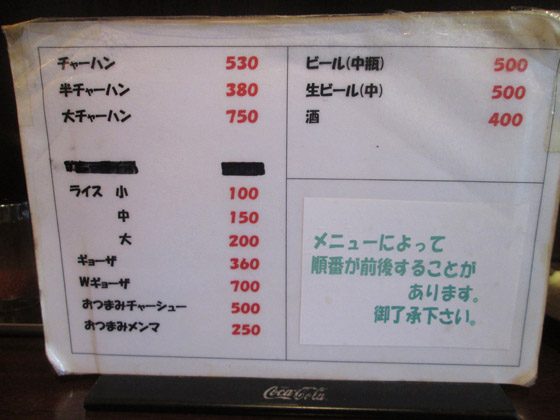 チャーハン 530
半チャーハン 380
大チャーハン 750
ライス 小 100
中 150
大 200
ギョーザ 360
Wギョーザ 700
おつまみチャーシュー 500
おつまみメンマ 250
ビール(中瓶) 500
生ビール(中) 500
酒 400
メニューによって
順番が前後することが
あります。
御了承下さい。
Coca-Cola